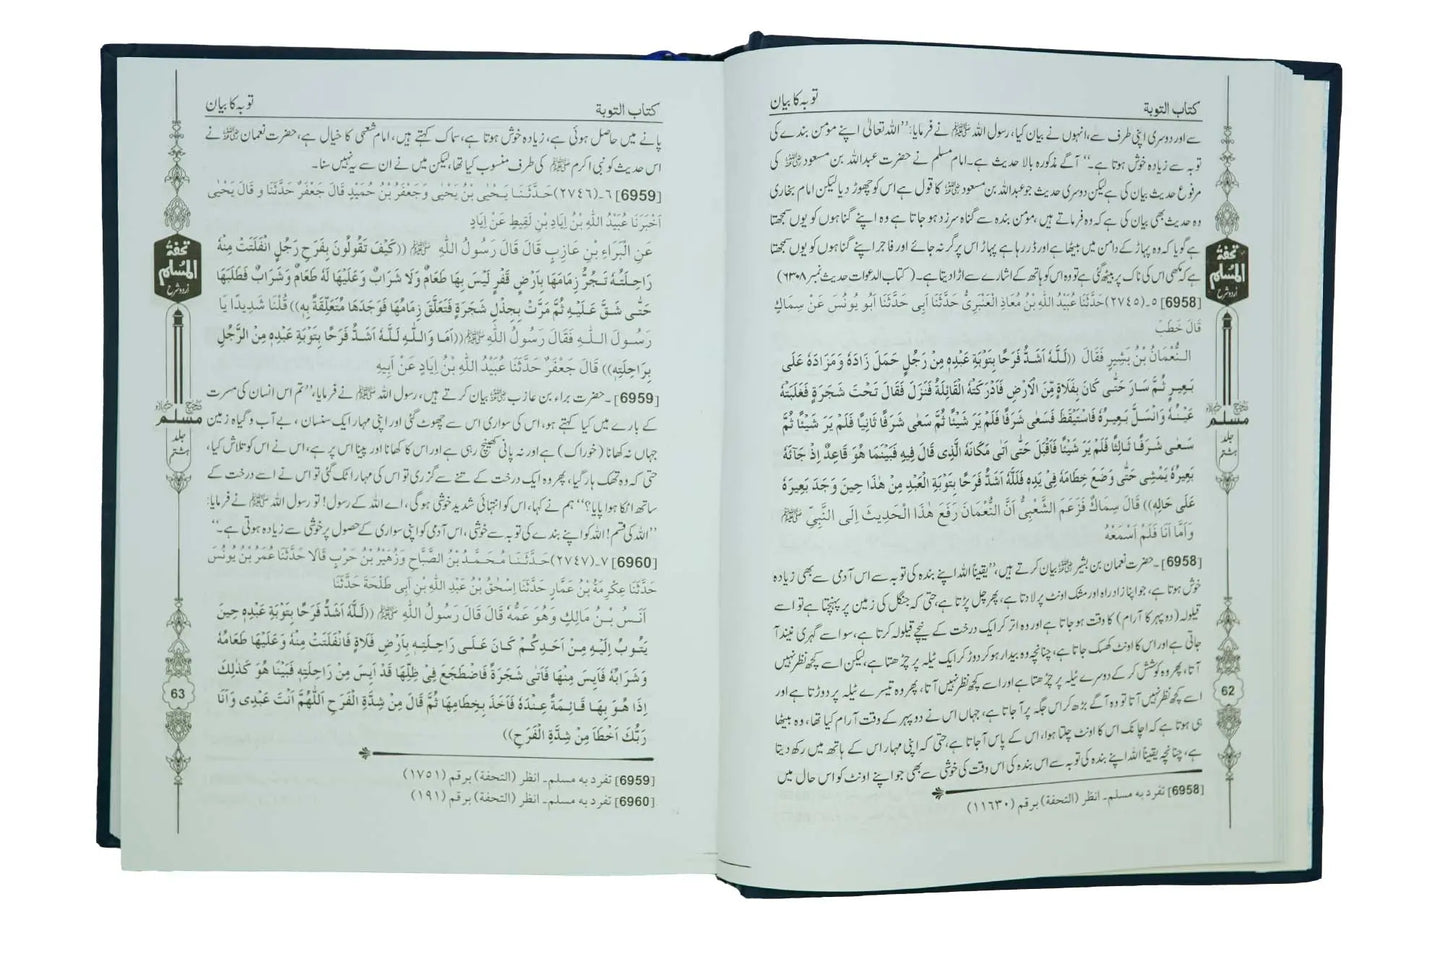 کتاب التوبة
توبہ کا بیان
سے اور دوسری اپنی طرف سے، انہوں نے بیان کیا، رسول اللہ ﷺ نے فرمایا: ’’اللہ تعالیٰ اپنے مومن بندے کی
توبہ سے زیادہ خوش ہوتا ہے۔‘‘ آگے مذکورہ بالا حدیث ہے۔ امام مسلم نے حضرت عبداللہ بن مسعود کی
مرفوع حدیث بیان کی ہے لیکن دوسری حدیث جو عبداللہ بن مسعود کا قول ہے اس کو چھوڑ دیا لیکن امام بخاری
وہ حدیث بھی بیان کی ہے کہ وہ فرماتے ہیں، مومن بندہ سے گناہ سرزد ہو جاتا ہے وہ اپنے گناہوں کو یوں سمجھتا
ہے گویا کہ وہ پہاڑ کے دامن میں بیٹھا ہے اور ڈر رہا ہے پہاڑ اس پر گر نہ جائے اور فاجر اپنے گناہوں کو یوں سمجھتا
ہے کہ مکھی اس کی ناک پر بیٹھ گئی ہے تو وہ اس کو ہاتھ کے اشارے سے اڑا دیتا ہے۔ (کتاب الدعوات حدیث نمبر ۶۳۰۸)
[6958] ۵۔(۲۷۴۵) حَدَّثَنَا عُبَيْدُ اللّٰهِ بْنُ مُعَاذٍ الْعَنْبَرِيُّ حَدَّثَنَا أَبِي حَدَّثَنَا أَبُو يُونُسَ عَنْ سِمَاكٍ
قَالَ خَطَبَ
النُّعْمَانُ بْنُ بَشِيرٍ فَقَالَ ((لَلّٰهُ اَشَدُّ فَرَحًا بِتَوْبَةِ عَبْدِهِ مِنْ رَجُلٍ حَمَلَ زَادَهُ وَمَزَادَهُ عَلَى
بَعِيرٍ ثُمَّ سَارَ حَتّٰى كَانَ بِفَلَاةٍ مِّنَ الْاَرْضِ فَاَدْرَكَتْهُ الْقَائِلَةُ فَنَزَلَ فَقَالَ تَحْتَ شَجَرَةٍ فَغَلَبَتْهُ
عَيْنُهُ وَانْسَلَّ بَعِيرُهُ فَاسْتَيْقَظَ فَسَعٰى شَرَفًا فَلَمْ يَرَ شَيْئًا ثُمَّ سَعٰى شَرَفًا ثَانِيًا فَلَمْ يَرَ شَيْئًا ثُمَّ
سَعٰى شَرَفًا ثَالِثًا فَلَمْ يَرَ شَيْئًا فَاَقْبَلَ حَتّٰى اَتٰى مَكَانَهُ الَّذِي قَالَ فِيهِ فَبَيْنَمَا هُوَ قَاعِدٌ اِذْ جَائَهُ
بَعِيرُهُ يَمْشِي حَتّٰى وَضَعَ خِطَامَهُ فِي يَدِهِ فَلَلّٰهُ اَشَدُّ فَرَحًا بِتَوْبَةِ الْعَبْدِ مِنْ هٰذَا حِينَ وَجَدَ بَعِيرَهُ
عَلٰى حَالِهِ)) قَالَ سِمَاكٌ فَزَعَمَ الشَّعْبِيُّ اَنَّ النُّعْمَانَ رَفَعَ هٰذَا الْحَدِيثَ اِلَى النَّبِيِّ ﷺ
وَاَمَّا اَنَا فَلَمْ اَسْمَعْهُ
[6958]۔ حضرت نعمان بن بشیر بیان کرتے ہیں، ’’یقیناً اللہ اپنے بندہ کی توبہ سے اس آدمی سے بھی زیادہ
خوش ہوتا ہے، جو اپنا زاد راہ اور مشک اونٹ پر لادتا ہے، پھر چل پڑتا ہے، حتی کہ جنگل کی زمین پر پہنچتا ہے تو اسے
قیلولہ (دوپہر کا آرام) کا وقت ہو جاتا ہے اور وہ اتر کر ایک درخت کے نیچے قیلولہ کرتا ہے، سو اسے گہری نیند آ
جاتی ہے اور اس کا اونٹ کھسک جاتا ہے، چنانچہ وہ بیدار ہو کر دوڑ کر ایک ٹیلہ پر چڑھتا ہے، لیکن اسے کچھ نظر نہیں
آتا، پھر وہ کوشش کر کے دوسرے ٹیلہ پر چڑھتا ہے اور اسے کچھ نظر نہیں آتا، پھر وہ تیسرے ٹیلہ پر دوڑتا ہے اور
اسے کچھ نظر نہیں آتا تو وہ آگے بڑھ کر اس جگہ پر آ جاتا ہے، جہاں اس نے دوپہر کے وقت آرام کیا تھا، وہ بیٹھا
ہی ہوتا ہے کہ اچانک اس کا اونٹ چلتا ہوا، اس کے پاس آ جاتا ہے، حتی کہ اپنی مہار اس کے ہاتھ میں رکھ دیتا
ہے، چنانچہ یقیناً اللہ اپنے بندہ کی توبہ سے اس بندہ کی اس وقت کی خوشی سے بھی جو اپنے اونٹ کو اس حال میں
[6958] تفرد به مسلم۔ انظر (التحفة) برقم (۱۱۶۳۰)
تحفة
المسلم
اردو شرح
صحیح
مسلم
جلد
ہشتم
62
کتاب التوبة
توبہ کا بیان
پانے میں حاصل ہوئی ہے، زیادہ خوش ہوتا ہے، سماک کہتے ہیں، امام شعبی کا خیال ہے، حضرت نعمان نے
اس حدیث کو نبی اکرم ﷺ کی طرف منسوب کیا تھا، لیکن میں نے ان سے یہ نہیں سنا۔
[6959] ۶۔(۲۷۴۶) حَدَّثَنَا يَحْيَى بْنُ يَحْيٰى وَجَعْفَرُ بْنُ حُمَيْدٍ قَالَ جَعْفَرٌ حَدَّثَنَا و قَالَ يَحْيٰى
اَخْبَرَنَا عُبَيْدُ اللّٰهِ بْنُ اِيَادِ بْنِ لَقِيطٍ عَنْ اِيَادٍ
عَنِ الْبَرَاءِ بْنِ عَازِبٍ قَالَ قَالَ رَسُولُ اللّٰهِ ﷺ ((كَيْفَ تَقُولُونَ بِفَرَحِ رَجُلٍ انْفَلَتَتْ مِنْهُ
رَاحِلَتُهُ تَجُرُّ زِمَامَهَا بِاَرْضٍ قَفْرٍ لَيْسَ بِهَا طَعَامٌ وَلَا شَرَابٌ وَعَلَيْهَا لَهُ طَعَامٌ وَشَرَابٌ فَطَلَبَهَا
حَتّٰى شَقَّ عَلَيْهِ ثُمَّ مَرَّتْ بِجِذْلِ شَجَرَةٍ فَتَعَلَّقَ زِمَامُهَا فَوَجَدَهَا مُتَعَلِّقَةً بِهِ)) قُلْنَا شَدِيدًا يَا
رَسُولَ اللّٰهِ فَقَالَ رَسُولُ اللّٰهِ ﷺ ((اَمَا وَاللّٰهِ لَلّٰهُ اَشَدُّ فَرَحًا بِتَوْبَةِ عَبْدِهِ مِنَ الرَّجُلِ
بِرَاحِلَتِهِ)) قَالَ جَعْفَرٌ حَدَّثَنَا عُبَيْدُ اللّٰهِ بْنُ اِيَادٍ عَنْ اَبِيهِ
[6959]۔ حضرت براء بن عازب بیان کرتے ہیں، رسول اللہ ﷺ نے فرمایا، ’’تم اس انسان کی مسرت
کے بارے میں کیا کہتے ہو، اس کی سواری اس سے چھوٹ گئی اور اپنی مہار ایک سنسان، بے آب و گیاہ زمین
جہاں نہ کھانا (خوراک) ہے اور نہ پانی کھینچ رہی ہے اور اس کا کھانا اور پینا اس پر ہے، اس نے اس کو تلاش کیا،
حتی کہ وہ تھک ہار گیا، پھر وہ ایک درخت کے تنے سے گزری تو اس کی مہار اٹک گئی تو اس نے اسے درخت کے
ساتھ اٹکا ہوا پایا؟‘‘ ہم نے کہا، اس کو انتہائی شدید خوشی ہو گی، اے اللہ کے رسول! تو رسول اللہ ﷺ نے فرمایا:
’’اللہ کی قسم! اللہ کو اپنے بندے کی توبہ سے خوشی، اس آدمی کو اپنی سواری کے حصول پر خوشی سے زیادہ ہوتی ہے۔‘‘
[6960] ۷۔(۲۷۴۷) حَدَّثَنَا مُحَمَّدُ بْنُ الصَّبَّاحِ وَزُهَيْرُ بْنُ حَرْبٍ قَالَا حَدَّثَنَا عُمَرُ بْنُ يُونُسَ
حَدَّثَنَا عِكْرِمَةُ بْنُ عَمَّارٍ حَدَّثَنَا اِسْحٰقُ بْنُ عَبْدِ اللّٰهِ بْنِ اَبِي طَلْحَةَ حَدَّثَنَا
اَنَسُ بْنُ مَالِكٍ وَهُوَ عَمُّهُ قَالَ قَالَ رَسُولُ اللّٰهِ ﷺ ((لَلّٰهُ اَشَدُّ فَرَحًا بِتَوْبَةِ عَبْدِهِ حِينَ
يَتُوبُ اِلَيْهِ مِنْ اَحَدِكُمْ كَانَ عَلٰى رَاحِلَتِهِ بِاَرْضِ فَلَاةٍ فَانْفَلَتَتْ مِنْهُ وَعَلَيْهَا طَعَامُهُ
وَشَرَابُهُ فَاَيِسَ مِنْهَا فَاَتٰى شَجَرَةً فَاضْطَجَعَ فِي ظِلِّهَا قَدْ اَيِسَ مِنْ رَاحِلَتِهِ فَبَيْنَا هُوَ كَذٰلِكَ
اِذَا هُوَ بِهَا قَائِمَةً عِنْدَهُ فَاَخَذَ بِخِطَامِهَا ثُمَّ قَالَ مِنْ شِدَّةِ الْفَرَحِ اَللّٰهُمَّ اَنْتَ عَبْدِي وَاَنَا
رَبُّكَ اَخْطَاَ مِنْ شِدَّةِ الْفَرَحِ))
[6959] تفرد به مسلم۔ انظر (التحفة) برقم (۱۷۵۱)
[6960] تفرد به مسلم۔ انظر (التحفة) برقم (۱۹۱)
تحفة
المسلم
اردو شرح
صحیح
مسلم
جلد
ہشتم
63